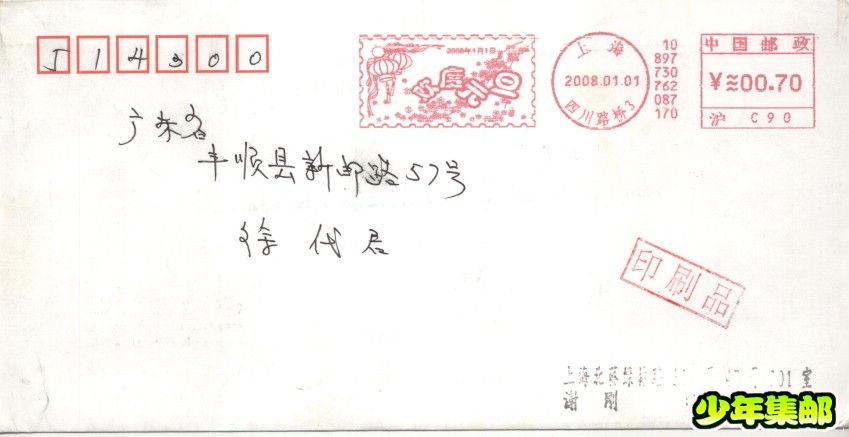 514300
2008年1月1日
欢度元旦
上海
2008.01.01
四川路桥3
10
897
730
762
087
170
中国邮政
¥≋00.70
沪 C90
广东省
丰顺县新邮路57号
徐代君
印刷品
上海北蔡 01室
谢刚
少年集邮